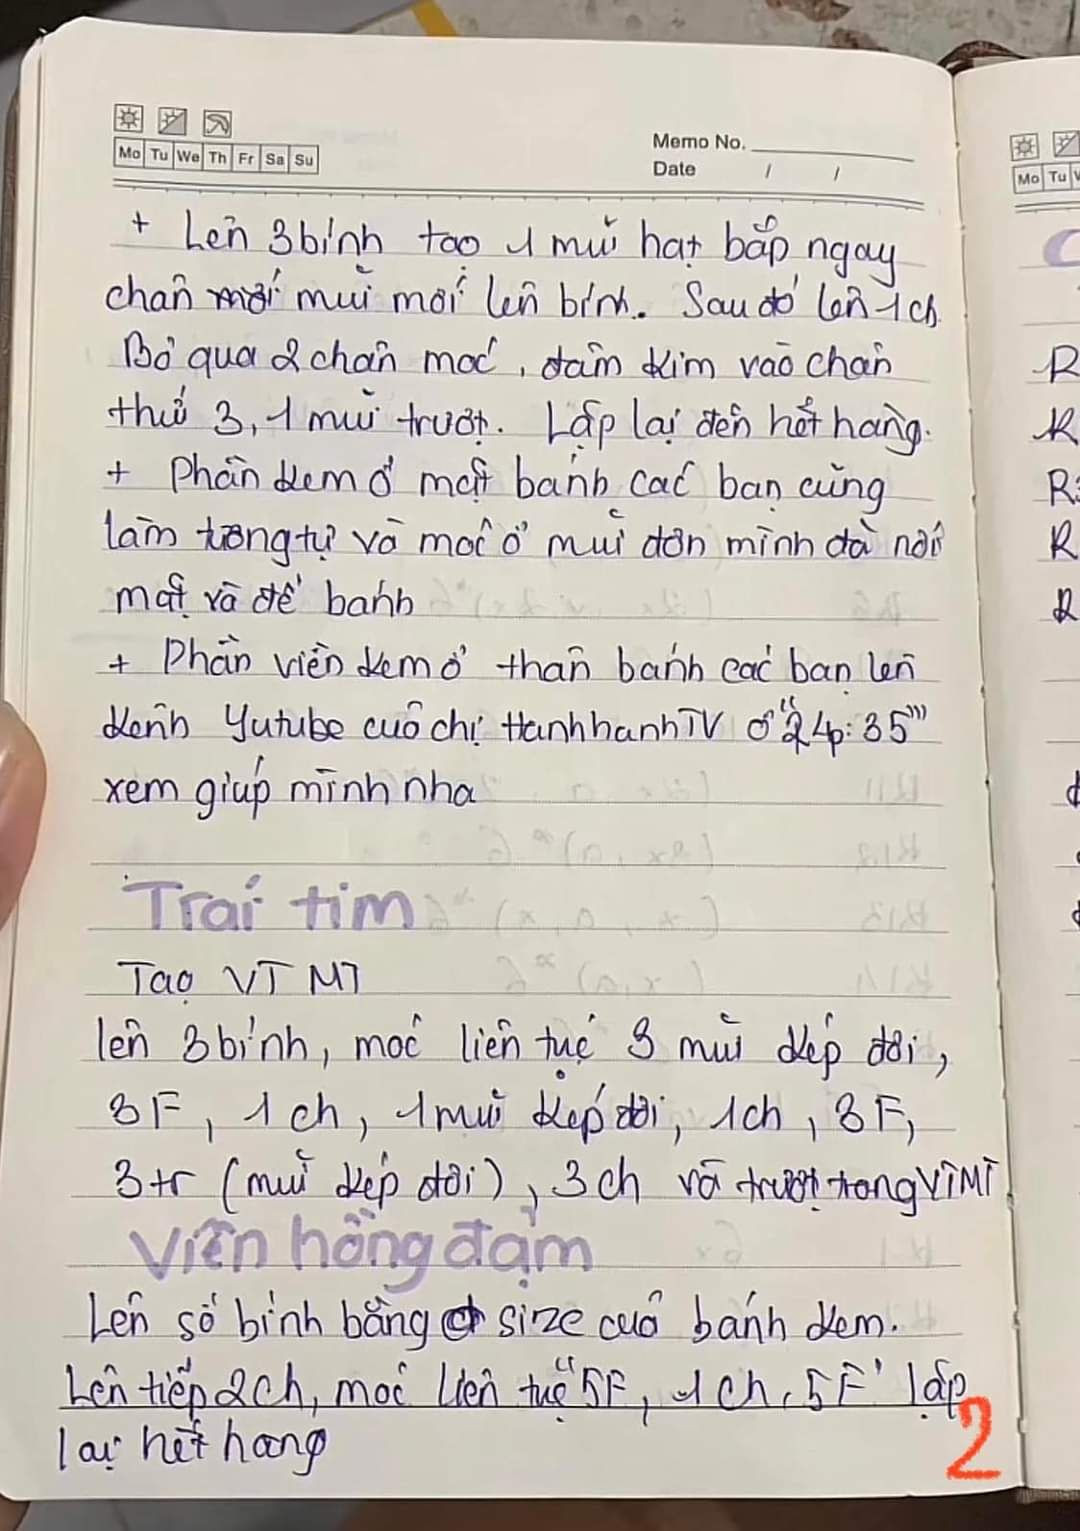 Mo Tu We Th Fr Sa Su
Memo No.
Date / /
+ Lên 3 bính tạo 1 mũi hạt bắp ngay
chân mũi mới lên bính. Sau đó lên 1ch
Bỏ qua 2 chân móc, đâm kim vào chân
thứ 3, 1 mũi trượt. Lặp lại đến hết hàng.
+ Phần kem ở mặt bánh các bạn cũng
làm tương tự và móc ở mũi đơn mình đã nối
mặt và đế bánh
+ Phần viền kem ở thân bánh các bạn lên
kênh Yutube cuả chị HanhhanhTV ở "24p:35"
xem giúp mình nha
Trái tim
Tạo VTMT
lên 3 bính, móc liên tục 3 mũi kép đôi,
3F, 1ch, 1 mũi kép đôi, 1ch, 3F,
3tr (mũi kép đôi), 3ch và trượt trong VTMT
Viền hồng đậm
Lên số bính bằng size cuả bánh kem.
Lên tiếp 2ch, móc liên tục "5F, 1ch, 5F" lặp
lại hết hàng
2
Mo Tu
R
R
R
R